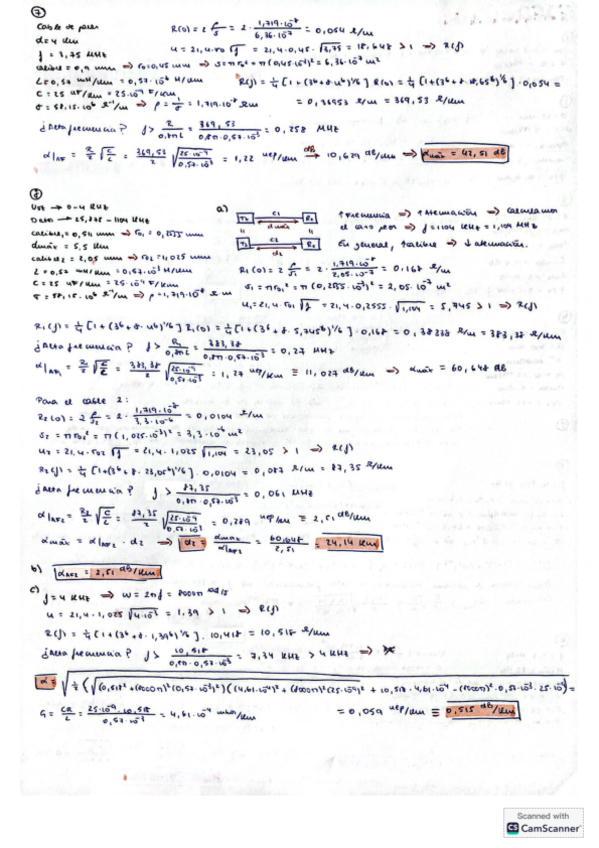 7
Cable de pares
d = 4 Km
f = 3,75 MHz
calibre = 0,9 mm → r0 = 0,45 mm ⇒ S = πr0² = π(0,45·10⁻³)² = 6,36·10⁻⁷ m²
L = 0,57 mH/Km = 0,57·10⁻³ H/Km
C = 25 nF/Km = 25·10⁻⁹ F/Km
σ = 58,15·10⁶ Ω⁻¹/m → ρ = 1/σ = 1,719·10⁻⁸ Ω·m
R(0) = 2 ρ/S = 2 · 1,719·10⁻⁸ / 6,36·10⁻⁷ = 0,054 Ω/m
u = 21,4·r0 √f = 21,4·0,45·√3,75 = 18,648 > 1 ⇒ R(f)
R(f) = 1/4 [1+(3⁶+8·u⁶)^1/6] R(0) = 1/4 [1+(3⁶+8·18,65⁶)^1/6] · 0,054 =
= 0,36953 Ω/m = 369,53 Ω/Km
¿Alta frecuencia? f > R / 0,8πL = 369,53 / 0,8π·0,57·10⁻³ = 0,258 MHz
α|AF = R/2 √C/L = 369,53/2 √25·10⁻⁹/0,57·10⁻³ = 1,22 nep/Km → dB 10,629 dB/Km ⇒ αmáx = 42,51 dB
8
→ 0-4 KHz
→ 25,875 - 1104 KHz
dmáx = 5,5 Km
calibre2 = 2,05 mm → r02 = 1,025 mm
L = 0,57 mH/Km = 0,57·10⁻³ H/Km
C = 25 nF/Km = 25·10⁻⁹ F/Km
σ = 58,15·10⁶ Ω⁻¹/m → ρ = 1,719·10⁻⁸ Ω·m
a)
C1
dmáx
C2
d2
↑ frecuencia ⇒ ↑ Atenuación ⇒ calculamos
el caso peor ⇒ f = 1104 KHz = 1,104 MHz
En general, ↑calibre ⇒ ↓ atenuación.
R1(0) = 2 ρ/S = 2 · 1,719·10⁻⁸ / 2,05·10⁻⁷ = 0,167 Ω/m
S1 = πr01² = π(0,2555·10⁻³)² = 2,05·10⁻⁷ m²
u1 = 21,4·r01 √f = 21,4·0,2555·√1,104 = 5,745 > 1 ⇒ R(f)
R1(f) = 1/4 [1+(3⁶+8·u⁶)^1/6] R1(0) = 1/4 [1+(3⁶+8·5,745⁶)^1/6] · 0,168 = 0,38338 Ω/m = 383,38 Ω/Km
¿Alta frecuencia? f > R1 / 0,8πL = 383,38 / 0,8π·0,57·10⁻³ = 0,27 MHz
α|AF1 = R1/2 √C/L = 383,38/2 √25·10⁻⁹/0,57·10⁻³ = 1,27 nep/Km ≡ 11,027 dB/Km ⇒ αmáx = 60,648 dB
Para el cable 2:
R2(0) = 2 ρ/S2 = 2 · 1,719·10⁻⁸ / 3,3·10⁻⁶ = 0,0104 Ω/m
S2 = πr02² = π(1,025·10⁻³)² = 3,3·10⁻⁶ m²
u2 = 21,4·r02 √f = 21,4·1,025 √1,104 = 23,05 > 1 ⇒ R(f)
R2(f) = 1/4 [1+(3⁶+8·23,05⁶)^1/6] · 0,0104 = 0,087 Ω/m = 87,35 Ω/Km
¿Alta frecuencia? f > 87,35 / 0,8π·0,57·10⁻³ = 0,061 MHz
α|AF2 = R2/2 √C/L = 87,35/2 √25·10⁻⁹/0,57·10⁻³ = 0,289 nep/Km ≡ 2,51 dB/Km
αmáx = α|AF2 · d2 ⇒ d2 = αmáx/α|AF2 = 60,648/2,51 = 24,14 Km
b) αAF2 = 2,51 dB/Km
c) f = 4 KHz ⇒ W = 2πf = 8000π rad/s
u = 21,4·1,025 √4·10⁻³ = 1,39 > 1 ⇒ R(f)
R(f) = 1/4 [1+(3⁶+8·1,39⁶)^1/6] · 10,418 = 10,518 Ω/Km
¿Alta frecuencia? f > 10,518 / 0,8π·0,57·10⁻³ = 7,34 KHz > 4 KHz ⇒
α = √1/2 (√(10,518²+(8000π)²(0,57·10⁻³)²)((4,61·10⁻⁴)²+(8000π)²(25·10⁻⁹)²) + 10,518·4,61·10⁻⁴ - (8000π)²·0,57·10⁻³·25·10⁻⁹) =
G = CR/L = 25·10⁻⁹·10,518 / 0,57·10⁻³ = 4,61·10⁻⁴ mho/Km
= 0,059 nep/Km ≡ 0,515 dB/Km
Scanned with
CS CamScanner